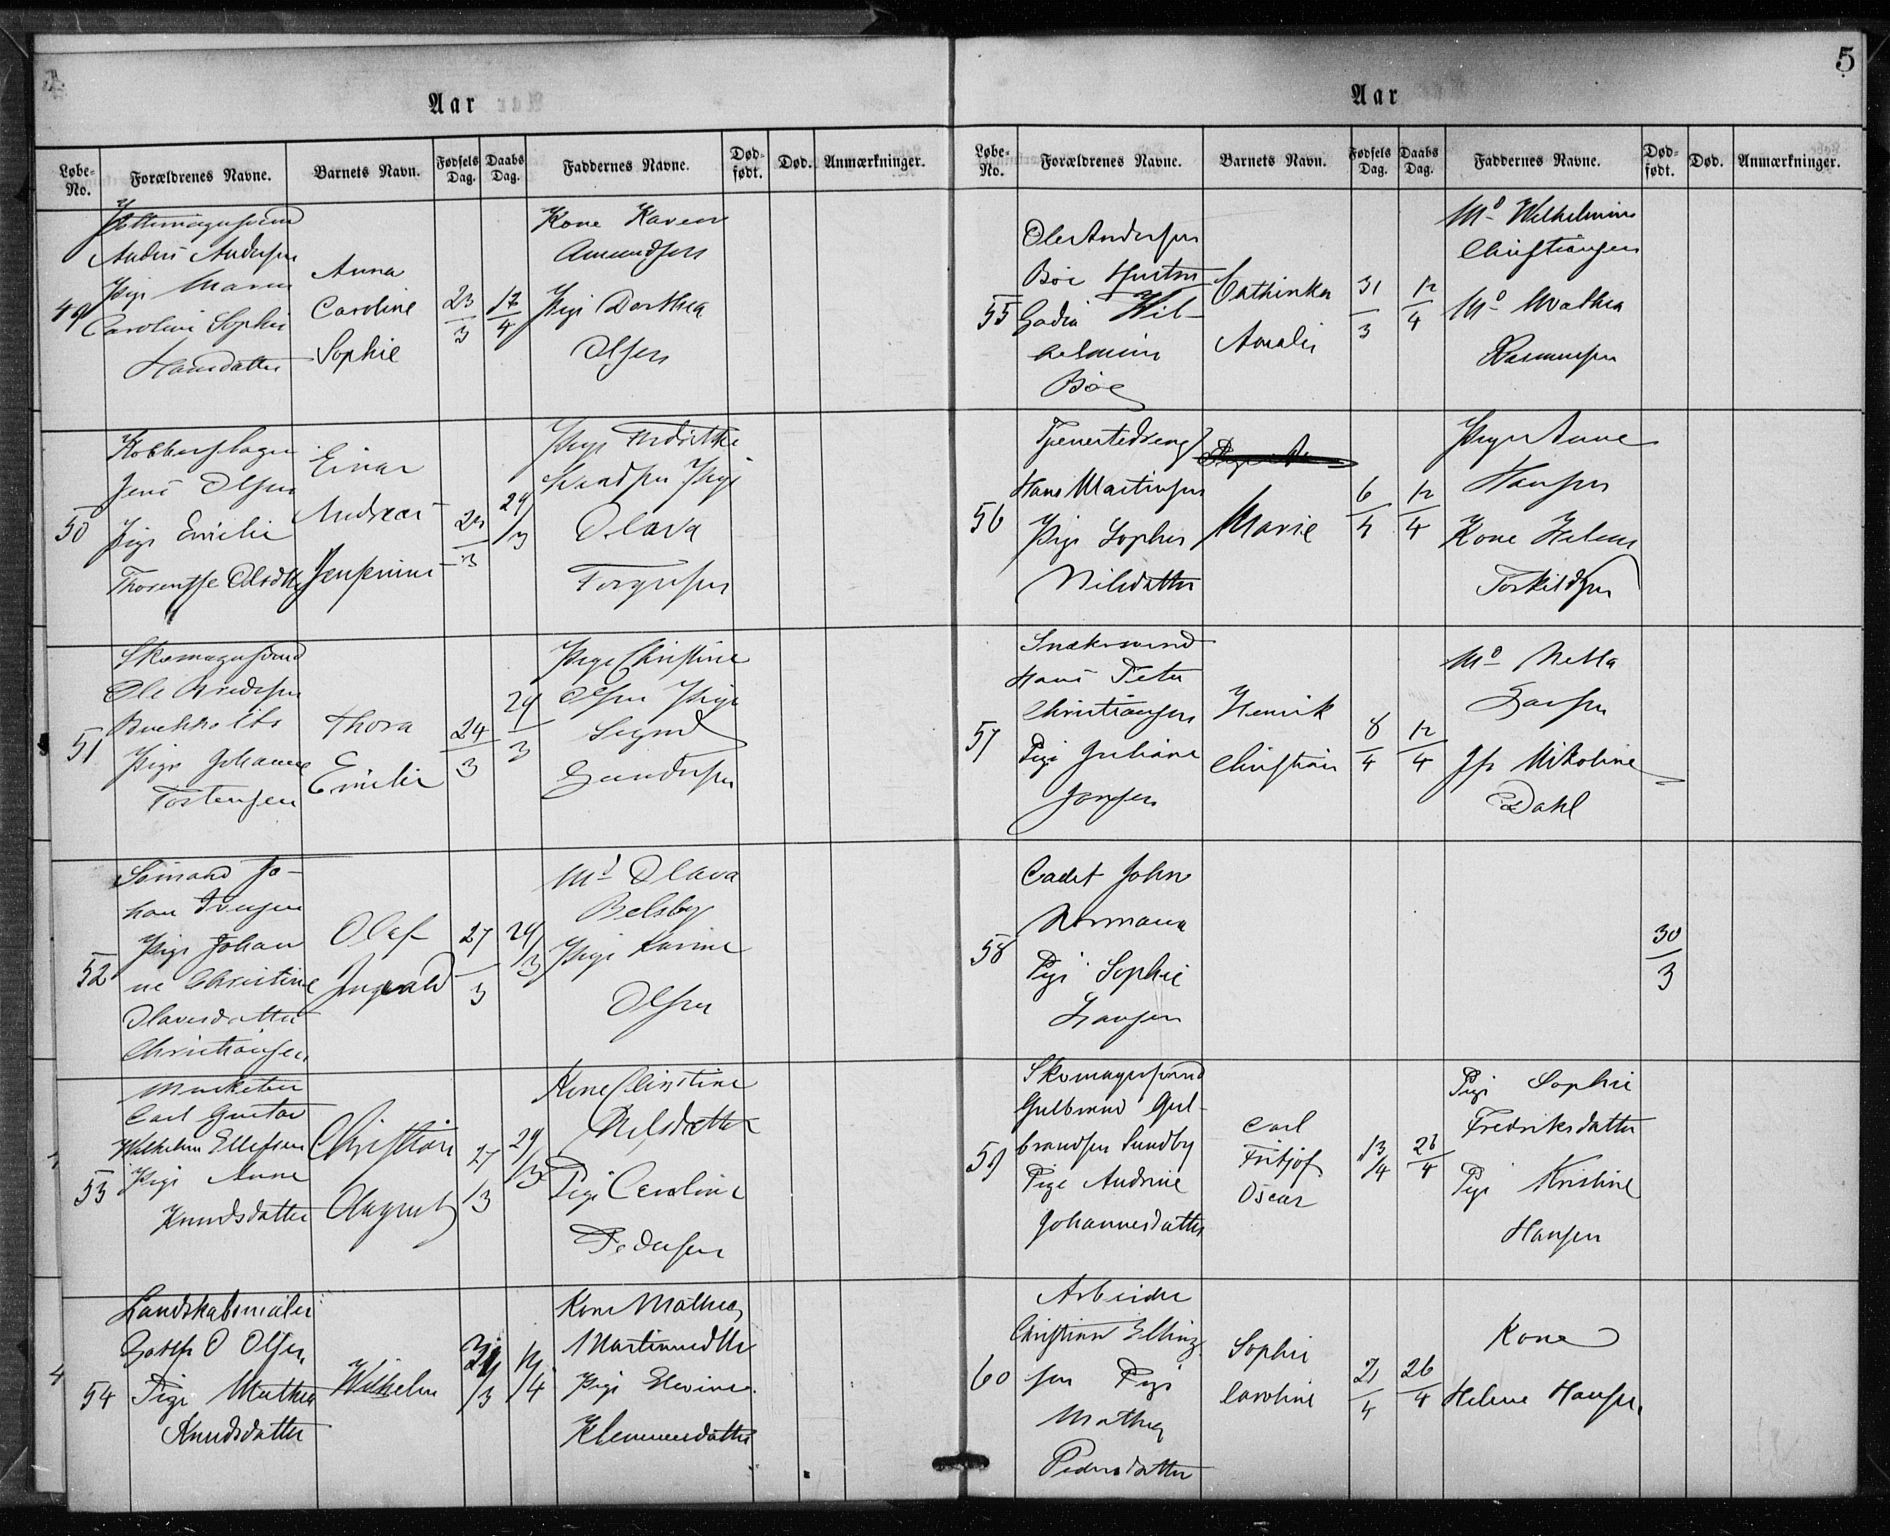 5
Aar
Løbe-No. Forældrenes Navne. Barnets Navn. Fødsels Dag. Daabs Dag. Faddernes Navne. Død-født. Død. Anmærkninger.
49
Anders Andersen
Pige Maren
Caroline Sophie
Hansdatter
Anna
Caroline
Sophie
23/3
12/4
Kone Karen
Amundsen
Pige Dorthea
Olsen
50
Kobberslager
Jens Olsen
Pige Emilie
Einar
Andreas
23/3
29/3
Pige
Pige
Olava
51
Skomagersvend
Ole
Pige Johanne
Torstensen
Thora
Emilie
24/3
29/3
Pige Christine
Olsen Pige
Gundersen
52
Sømand Jo-
han Iversen
Pige Johan
ne Christine
Olavesdatter
Christiansen
Olaf
Ingvald
27/3
29/3
Md Olava
Belsby
Pige Karine
Olsen
53
Musketer
Carl Gustav
Wilhelm Ellefsen
Pige Anne
Knudsdatter
Christian
August
27/3
29/3
Kone Christine
Nilsdatter
Pige Caroline
Pedersen
54
Landskabsmaler
O Olsen
Pige Mathea
Knudsdatter
Wilhelm
/3
12/4
Kone Mathea
Pige Elevine
Klemmensdatter
Aar
Løbe-No. Forældrenes Navne. Barnets Navn. Fødsels Dag. Daabs Dag. Faddernes Navne. Død-født. Død. Anmærkninger.
55
Ole Andersen
Bøe Hustru
Wil-
helmine
Bøe
Cathinka
Amalie
31/3
12/4
Md Wilhelmine
Christiansen
Md Mathea
Rasmussen
56
Tjenestedreng
Hans Martinsen
Pige Sophie
Nilsdatter
Marie
6/4
12/4
Pige Anne
Hansen
Kone Helene
Torkildsen
57
Snekkersvend
Hans Peter
Christiansen
Pige Juliane
Jonsen
Henrik
Christian
8/4
12/4
Md Netta
Larsen
Jfr Nikoline
Dahl
58
Cadet John
Normann
Pige Sophie
Hansen
30/3
59
Skomagersvend
Gulbrand Gul-
brandsen Sundby
Pige Andrine
Johannesdatter
Carl
Fritjof
Oscar
13/4
26/4
Pige Sophie
Fredriksdatter
Pige Kristine
Hansen
60
Arbeider
Christian Elling-
sen Pige
Mathea
Pedersdatter
Sophie
Caroline
2/4
26/4
Kone
Helene Hansen